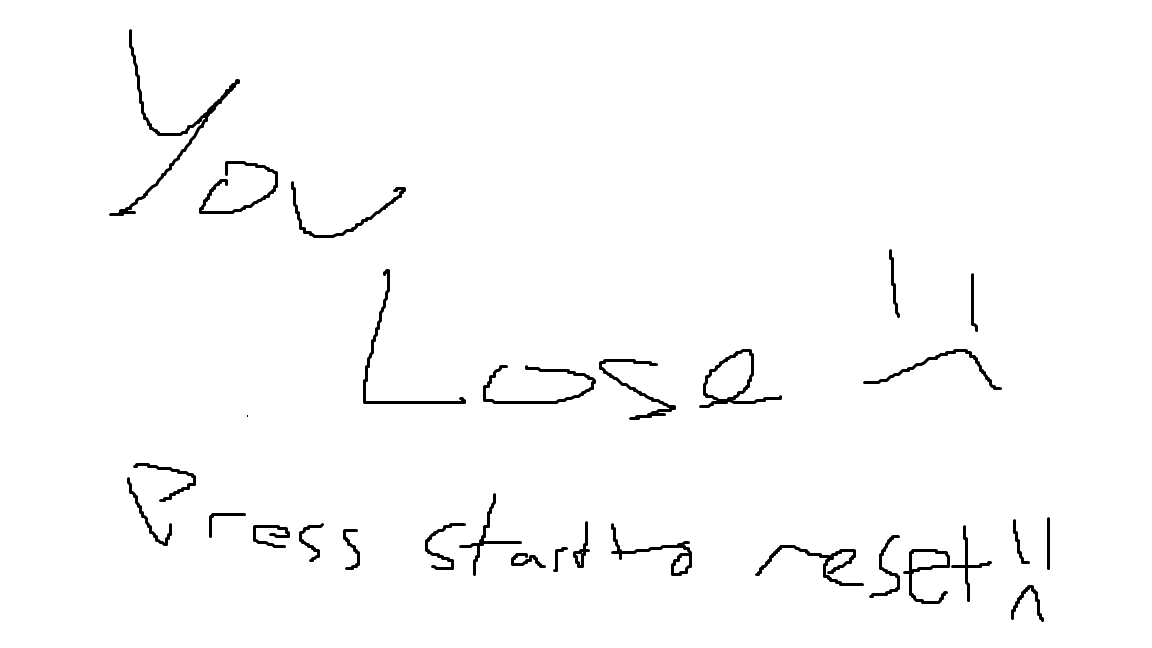 You
Lose
Press start to reset